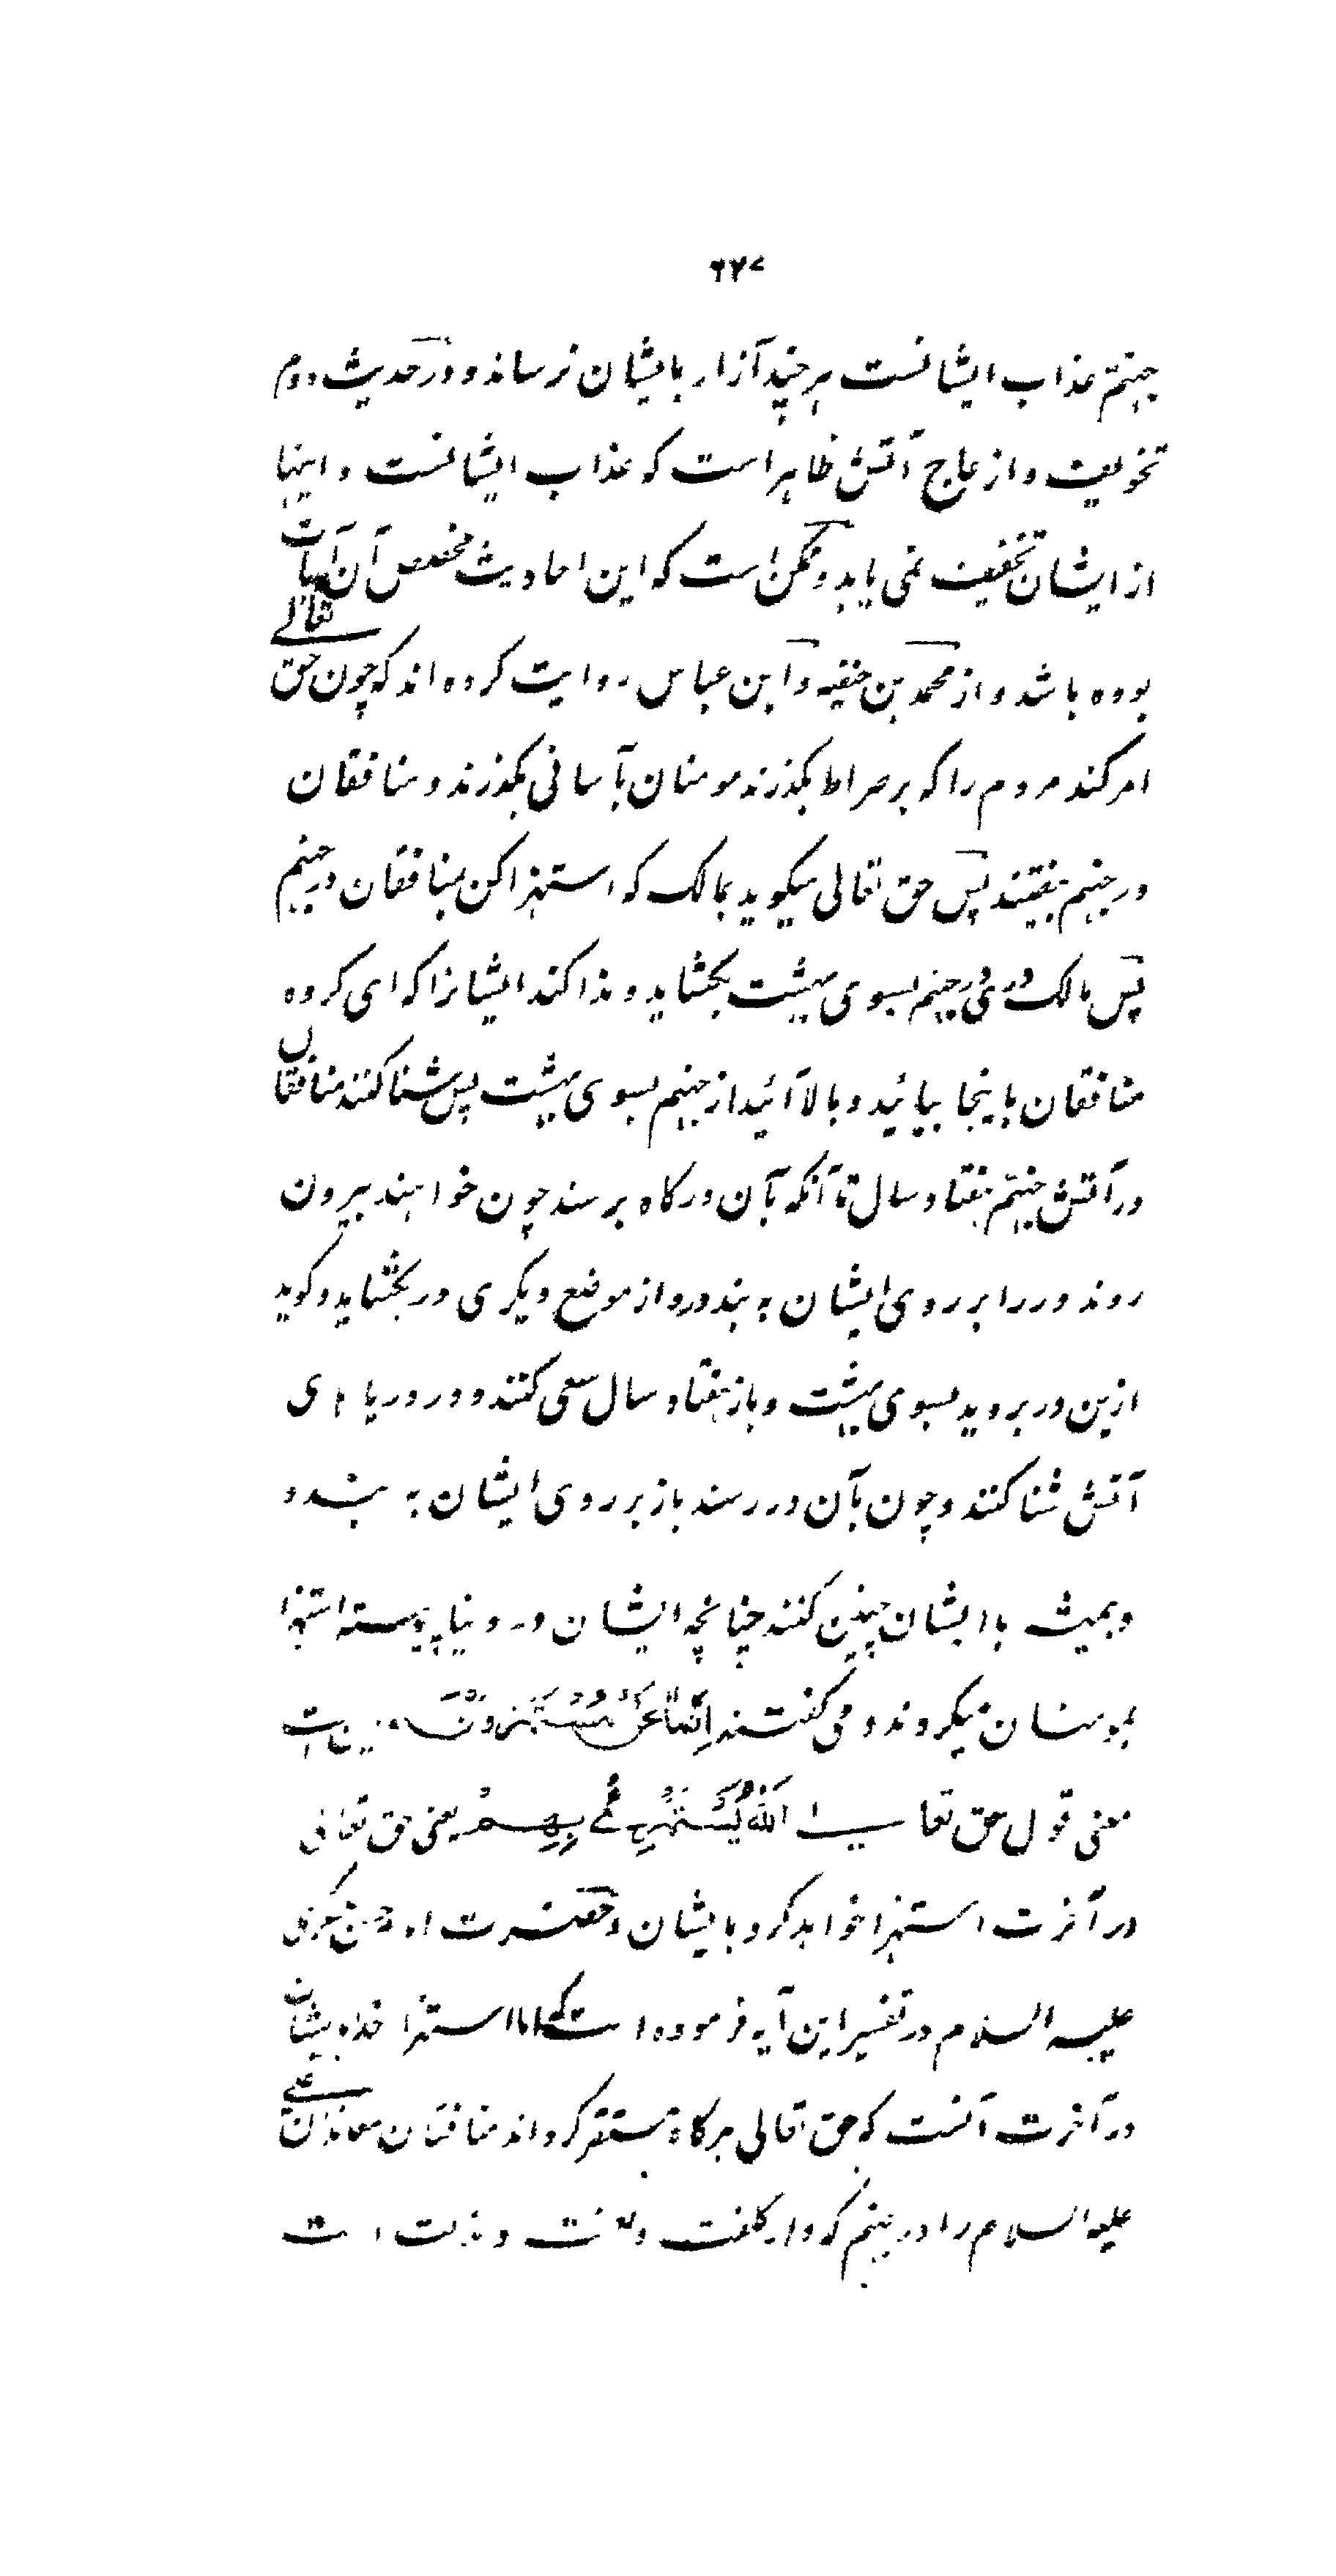 ۲۲۷
جهنم عذاب ایشانست هر چند آزار بایشان نرساند و در حدیث دوم
تخویف و ازعاج آتش ظاهر است که عذاب ایشانست و اینها
از ایشان تخفیف نمی یابد و ممکن است که این احادیث مخصص آن آیات
بوده باشد و از محمد بن حنفیه و ابن عباس روایت کرده اند که چون حق تعالے
امر کند مردم را که بر صراط بگذرند مومنان بآسانی بگذرند و منافقان
در جهنم بیفتند پس حق تعالی میگوید بمالک که استهزا کن بمنافقان در جهنم
پس مالک دری در جهنم بسوی بهشت بگشاید و ندا کند ایشانرا که ای گروه
منافقان باینجا بیائید و بالا آئید از جهنم بسوی بهشت پس شنا کنند منافقان
در آتش جهنم هفتاد سال تا آنکه بآن درگاه برسند چون خواهند بیرون
روند در را بر روی ایشان به بندد و از موضع دیگری در بگشاید و گوید
ازین در بروید بسوی بهشت و باز هفتاد سال سعی کنند و در دریا های
آتش شنا کنند و چون بآن در رسند باز بر روی ایشان به بندد و
و همیشه با ایشان چنین کنند چنانچه ایشان در دنیا پیوسته استهزا
بمومنان میکردند و می گفتند اِنَّمَا نَحْنُ مُسْتَهْزِؤُنَ اینست
معنی قول حق تعالی اَللّٰهُ یَسْتَهْزِئُ بِهِمْ یعنی حق تعالی
در آخرت استهزا خواهد کرد بایشان و حضرت امام حسن عسکری
علیه السلام در تفسیر این آیه فرموده است که اما استهزا خدا بایشان
در آخرت آنست که حق تعالی هرگاه مستقر گرداند منافقان معاندان علی
علیه السلام را در جهنم که دار کلفت و لعنت و مذلت است